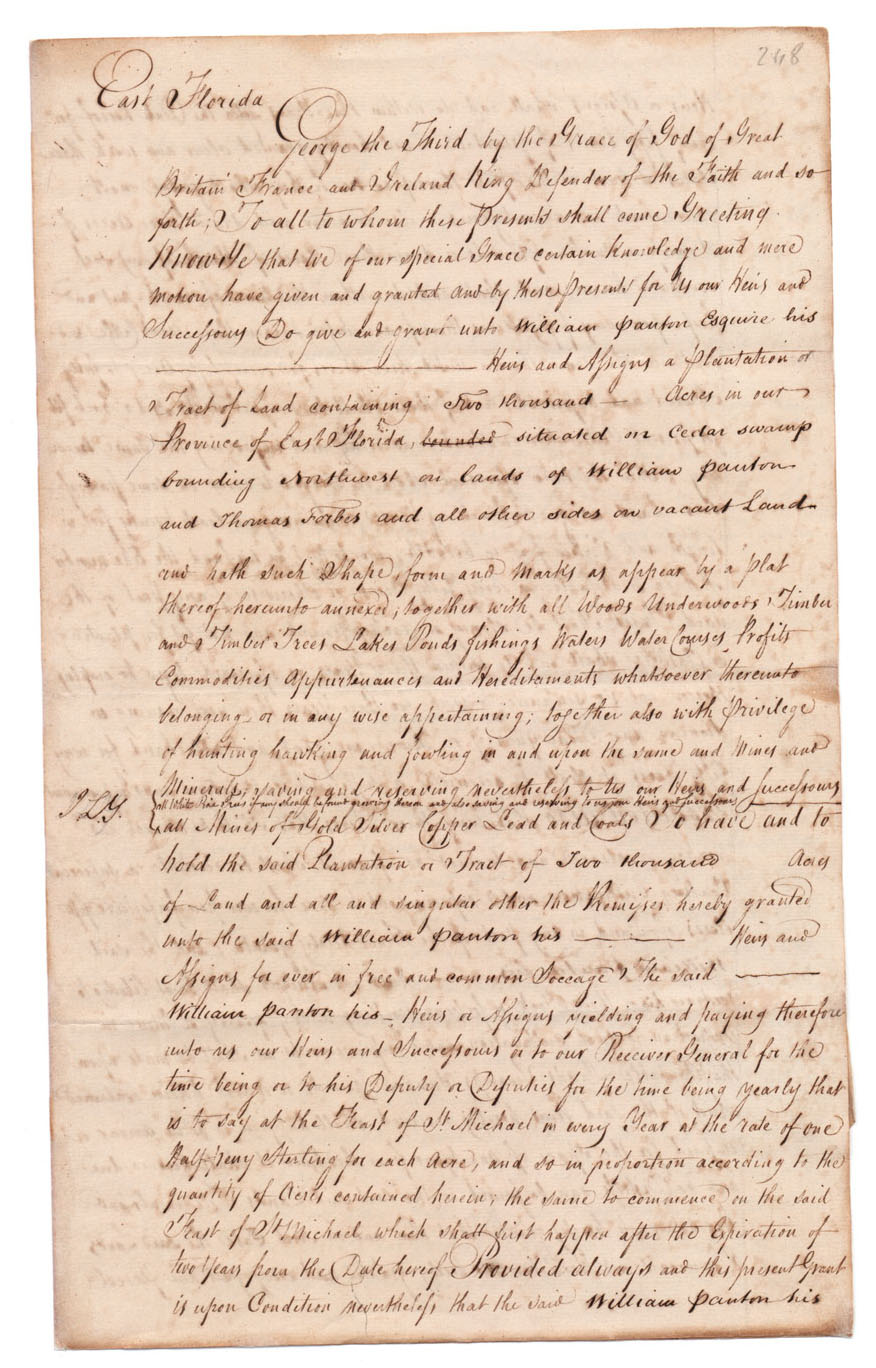 248
East Florida
George the Third by the Grace of God of Great
Britain France and Ireland King Defender of the Faith and so
forth; To all to whom these Presents shall come Greeting.
Know Ye that We of our special Grace certain Knowledge and mere
motion have given and granted and by these Presents for Us our Heirs and
Successours Do give and grant unto William Panton Esquire his
Heirs and Assigns a Plantation or
Tract of Land containing Two thousand — Acres in our
Province of East Florida, bounded situated on Cedar swamp
bounding Northwest on lands of William Panton
and Thomas Forbes and all other sides on vacant Land
and hath such Shape, form and Marks as appear by a plat
thereof hereunto annexed; together with all Woods Underwoods Timber
and Timber Trees Lakes Ponds fishings Waters Water Courses Profits
Commodities Appurtenances and Hereditaments whatsoever thereunto
belonging or in any wise appertaining; together also with Privilege
of hunting hawking and fowling in and upon the same and Mines and
Minerals; saving and reserving nevertheless to Us our Heirs and Successours
all White Pine Trees if any should be found growing thereon and also saving and reserving to us our Heirs and successours
all Mines of Gold Silver Copper Lead and Coals To have and to
hold the said Plantation or Tract of Two thousand Acres
of Land and all and singular other the Premisses hereby granted
unto the said William Panton his — Heirs and
Assigns for ever in free and common Soccage The said —
William Panton his — Heirs or Assigns yielding and paying therefore
unto us our Heirs and Successours or to our Receiver General for the
time being or to his Deputy or Deputies for the time being yearly that
is to say at the Feast of St Michael in every Year at the rate of one
Half peny Sterling for each Acre, and so in proportion according to the
quantity of Acres contained herein; the same to commence on the said
Feast of St Michael which shall first happen after the Expiration of
two Years from the Date hereof Provided always and this present Grant
is upon Condition nevertheless that the said William Panton his